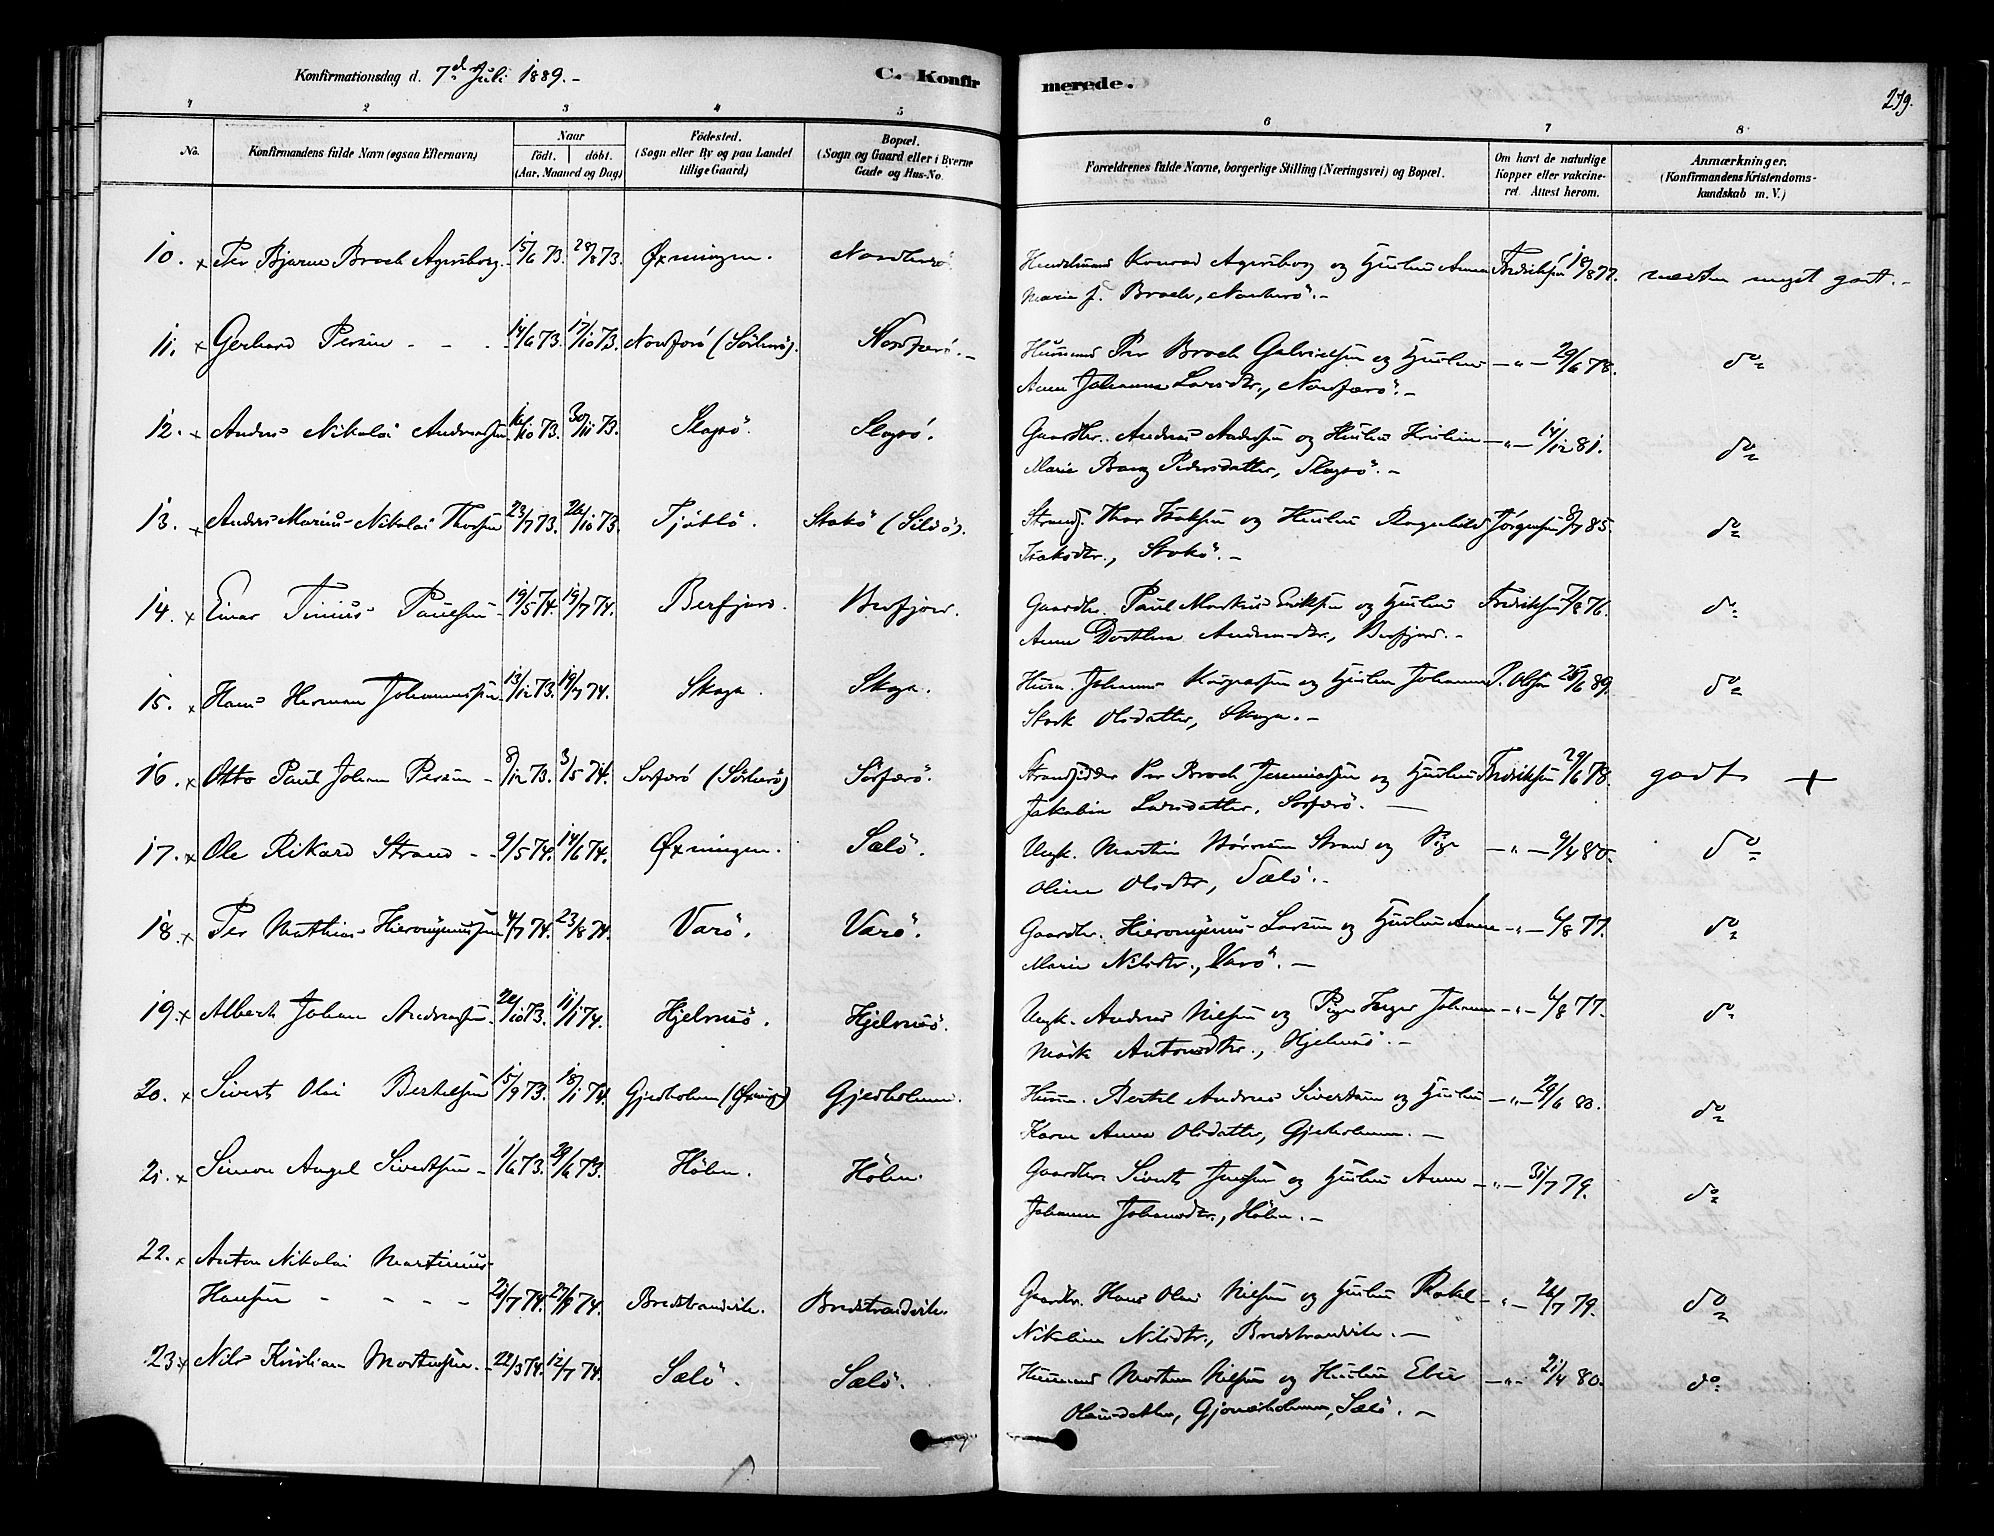 Konfirmationsdag d. 7de Juli 1889.-
C. Konfir
merede.
279.
1 2 3 4 5 6 7 8
No.
Konfirmandens fulde Navn (ogsaa Efternavn)
Naar
født. døbt.
(Aar, Maaned og Dag)
Fødested.
(Sogn eller By og paa Landet
tillige Gaard)
Bopæl.
(Sogn og Gaard eller i Byerne
Gade og Hus-No.
Forældrenes fulde Navne, borgerlige Stilling (Næringsvei) og Bopæl.
Om havt de naturlige
Kopper eller vakcine-
ret. Attest herom.
Anmærkninger.
(Konfirmandens Kristendoms-
kundskab m. V.)
10. x Per Bjarne Broch Agersborg. 15/6 73. 28/8 73. Øxningen. Nordherø. Konrad Agersborg og Hustru Anna Fredriksen 18/8 77. næsten meget godt.-
Marie f. Broch, Nordherø.-
11. x Gerhard Persen - - - 14/6 73. 17/10 73. Nordfærø (Sörherø). Nordfærø.- Husmand Per Broch Gabrielsen og Hustru -"- 29/6 78. do
Anne Johanna Larsdtr., Nordfærø.-
12. x Anders Nikolai Andreassen 16/10 73. 30/11 73. Slapø. Slapø. Gaardbr. Andreas Andersen og Hustru -"- 14/12 81. do
Marie Bang Pedersdatter, Slapø.-
13. x Anders Marius Nikolai Thorsen 23/7 73. 26/10 73. Tjötlö. Stokö (Sildö). Strands. Thor Isaksen og Hustru Ragnhild Jørgensen 8/7 85. do
Isaksdtr., Stokö.-
14. x Einar Tinius Paulsen - 19/5 74. 19/7 74. Berfjord. Berfjord. Gaardbr. Paul Markus Eriksen og Hustru Fredriksen 7/8 76. do
Anne Dorthea Andreasdtr., Berfjord.-
15. x Hans Herman Johannessen 13/12 73. 19/7 74. Skaga. Skaga. Husm. Johannes Kaspersen og Hustru Johanna P. Olsen 25/6 89. do
Stork Olsdatter, Skaga.-
16. x Otto Paul Johan Persen - 8/12 73. 3/5 74. Sørfærø (Sörherø) Sørfærø. Strandsidder Per Broch Jeremiassen og Hustru Fredriksen 29/6 78. godt +
Jakobine Larsdatter, Sørfærø.-
17. x Ole Rikard Strand - - 9/5 74. 14/6 74. Øxningen. Sælö. Ungk. Martin Strand og Pige -"- 9/4 80. do
Oline Olsdtr., Sælö.-
18. x Per Mathias Hieronymussen 4/7 74. 23/8 74. Varö. Varö. Gaardbr. Hieronymus Larsen og Hustru Anne -"- 6/8 77. do
Marie Nilsdtr., Varö.-
19. x Albert Johan Andreassen. 26/10 73. 11/1 74. Hjelmsö. Hjelmsö. Ungk. Andreas Nilsen og Pige Inger Johanna -"- 6/8 77. do
Mörk Antonsdtr., Hjelmsö.-
20. x Sivert Olai Bertelsen 15/9 73. 18/1 74. Gjedholmen (Øxning) Gjedholmen. Husm. Bertel Andreas Sivertsen og Hustru -"- 29/6 80. do
Karen Anna Olsdatter, Gjedholmen.-
21. x Simon Angel Sivertsen - 1/6 73. 29/6 73. Hölen. Hölen. Gaardbr. Sivert Jensen og Hustru Anne -"- 31/7 79. do
Johanna Johansdtr., Hölen.-
22. x Anton Nikolai Martinius
Hansen - - - - 21/7 74. 27/9 74. Bredstrandvik. Bredstrandvik. Gaardbr. Hans Olai Nilsen og Hustru Rakel -"- 26/7 79. do
Nikoline Nilsdtr., Bredstrandvik.-
23. x Nils Kristian Mortensen. 22/3 74. 12/7 74. Sælö. Sælö. Husmand Morten Nilsen og Hustru -"- 21/4 80. do
Olausdatter, Sælö.-